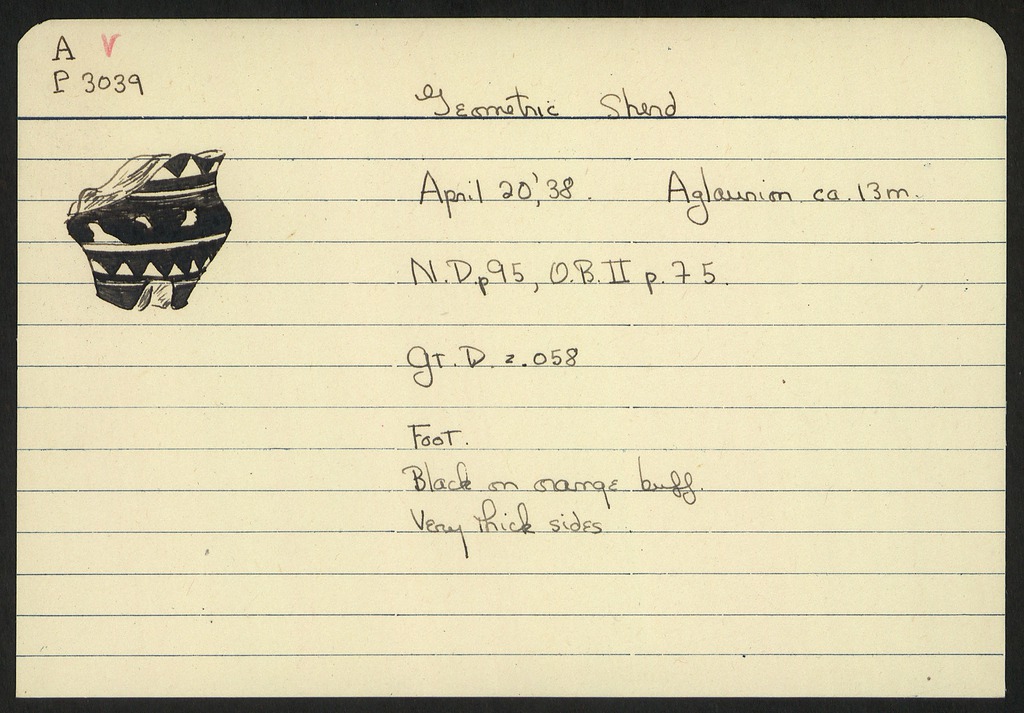 A V
P 3039
Geometric Sherd
April 20,'38. Aglaurion ca. 13m.
N.D.p95, O.B.II p. 75.
Gt. D. 2.058
Foot.
Black on orange buff.
Very thick sides.